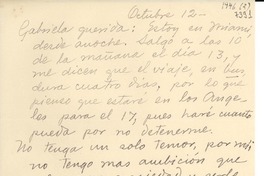 1946 (?)
Octubre 12-
Gabriela querida: Estoy en Miami
desde anoche. Salgo a las 10
de la mañana el día 13, y
me dicen que el viaje, en bus,
dura cuatro días, por lo que
pienso que estaré en los Ange-
les para el 17, pues haré cuanto
pueda por no detenerme.
No tenga un solo temor, por mí
no tengo mas ambición que